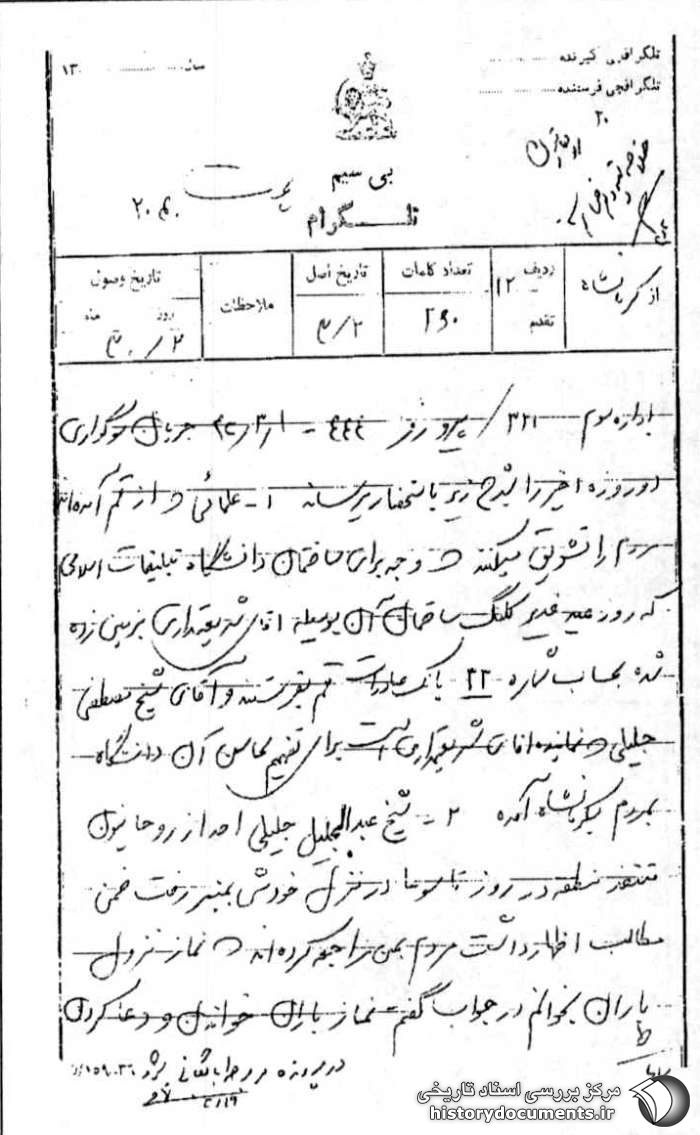 تلگرافچی گیرنده
سال ۱۳۰
تلگرافچی فرستنده
۲۰
خلاصه
بی سیم
تلگرام
از کرمانشاه
ردیف ۱۲
تقدم
تعداد کلمات
۲۹۰
تاریخ اصل
۳/۲
ملاحظات
تاریخ وصول
روز ماه
باداره سوم ۳۲۱/ ۴۴۴ - جریان سوگواری
دو روزه اخیر را بشرح زیر باستحضار میرساند ۱- علمائی که از قم آمده‌اند
مردم را تشویق میکنند که وجه برای ساختمان دانشگاه تبلیغات اسلامی
که روز عید غدیر کلنگ ساختمان آن بوسیله آقای شریعتمداری بزمین زده
شده بحساب شماره ۲۲ بانک صادرات قم بفرستند و آقای شیخ مصطفی
جلیلی که نماینده آقای شریعتمداری است برای تفهیم محاسن آن دانشگاه
بمردم بکرمانشاه آمده ۲- شیخ عبدالجلیل جلیلی احد از روحانیون
متنفذ منطقه در روز تاسوعا در منزل خودش بمنبر رفت ضمن
مطالب اظهار داشت مردم بمن مراجعه کرده‌اند که نماز نزول
باران بخوانم در جواب گفتم نماز باران خواندن و دعا کردن
در پرونده
مرکز بررسی اسناد تاریخی
historydocuments.ir